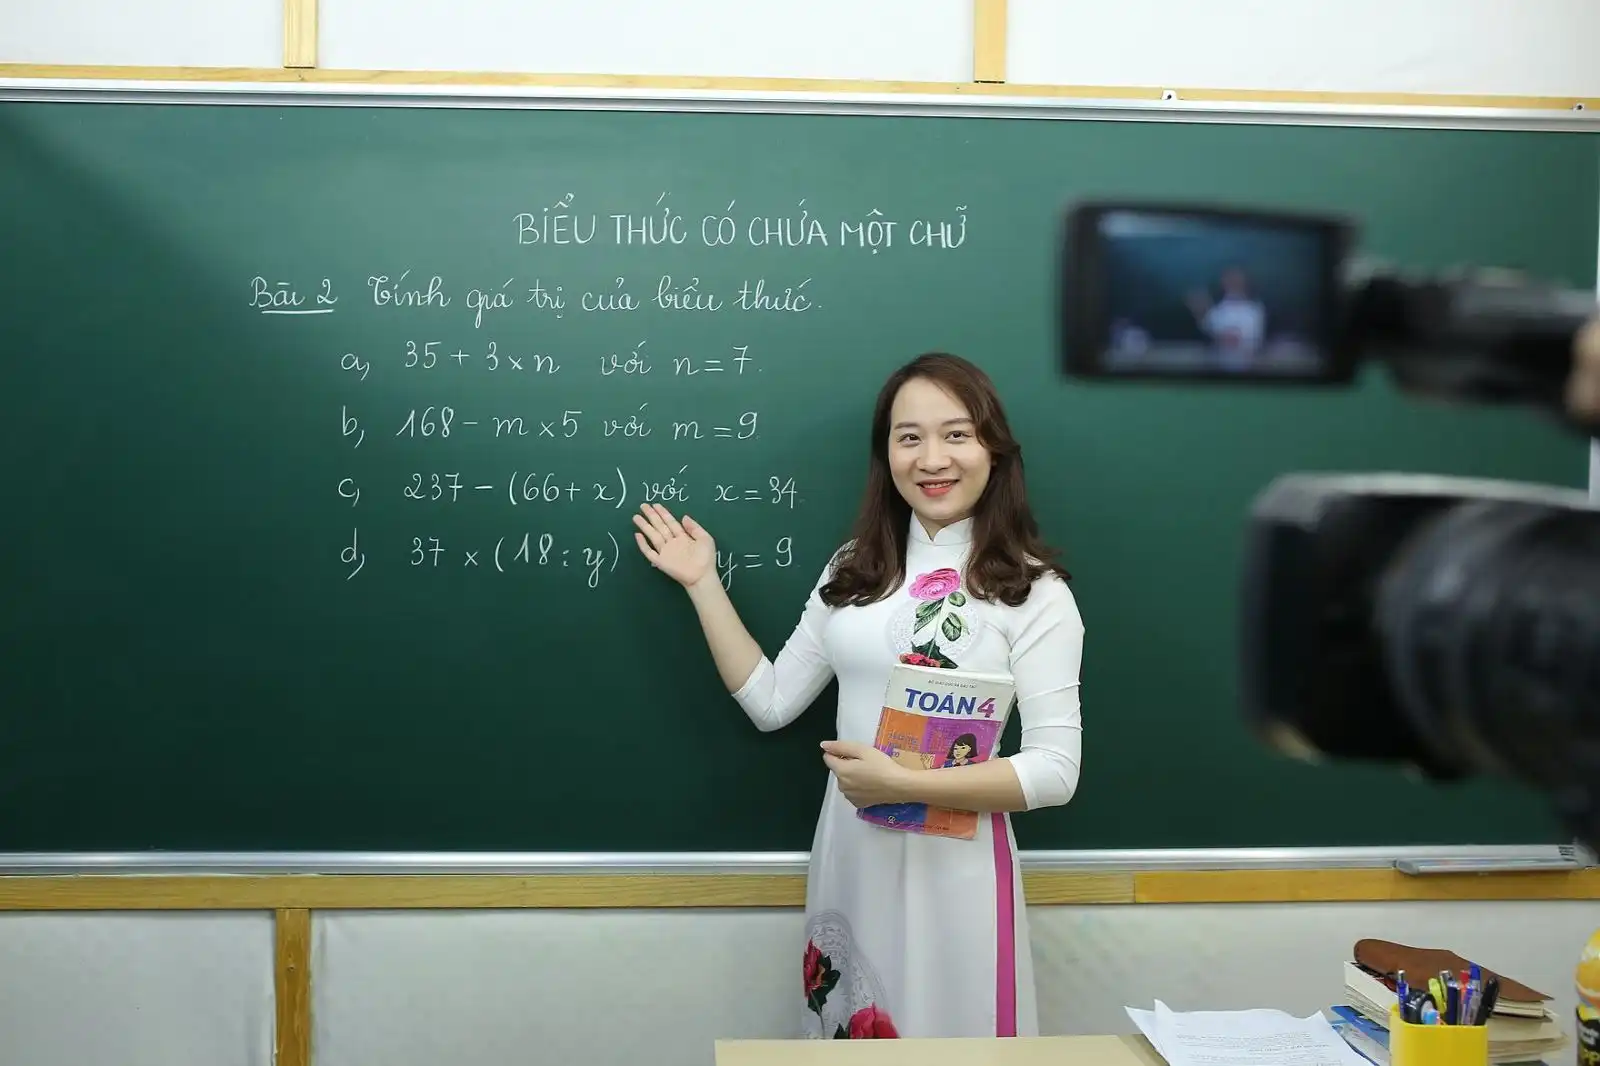 BIỂU THỨC CÓ CHỨA MỘT CHỮ
Bài 2 Tính giá trị của biểu thức.
a, 35 + 3 × n với n = 7.
b, 168 - m × 5 với m = 9.
c, 237 - (66 + x) với x = 34.
d, 37 × (18 : y) y = 9.
BỘ GIÁO DỤC VÀ ĐÀO TẠO
TOÁN 4